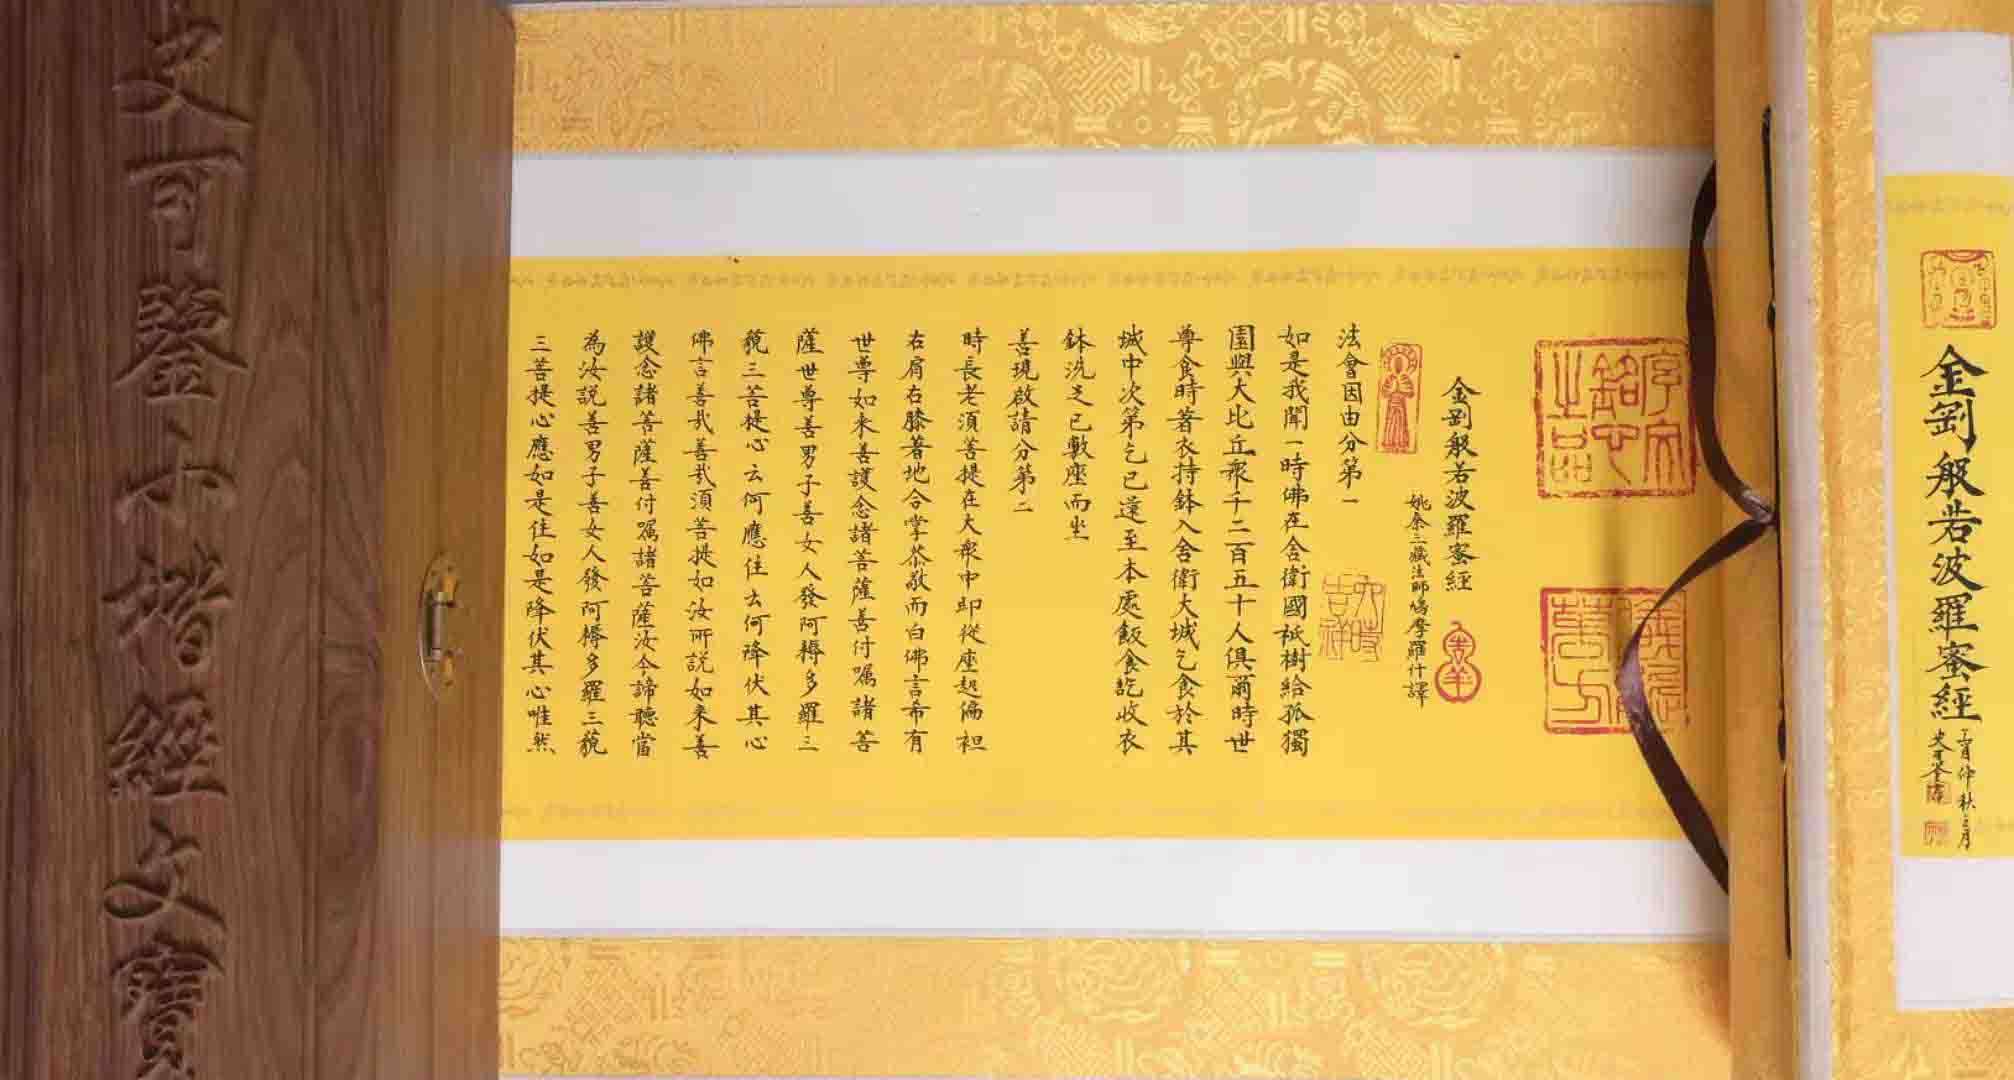 金剛般若波羅蜜經
史可鑒
金剛般若波羅蜜經
姚秦三藏法師鳩摩羅什譯
法會因由分第一
如是我聞一時佛在舍衛國祇樹給孤獨
園與大比丘衆千二百五十人俱爾時世
尊食時著衣持鉢入舍衛大城乞食於其
城中次第乞已還至本處飯食訖收衣
鉢洗足已敷座而坐
善現啟請分第二
時長老須菩提在大衆中即從座起偏袒
右肩右膝著地合掌恭敬而白佛言希有
世尊如来善護念諸菩薩善付嘱諸菩
薩世尊善男子善女人發阿耨多羅三
藐三菩提心云何應住云何降伏其心
佛言善哉善哉須菩提如汝所説如来善
護念諸菩薩善付嘱諸菩薩汝今諦聽當
為汝説善男子善女人發阿耨多羅三藐
三菩提心應如是住如是降伏其心唯然
史可鑒小楷經文寶